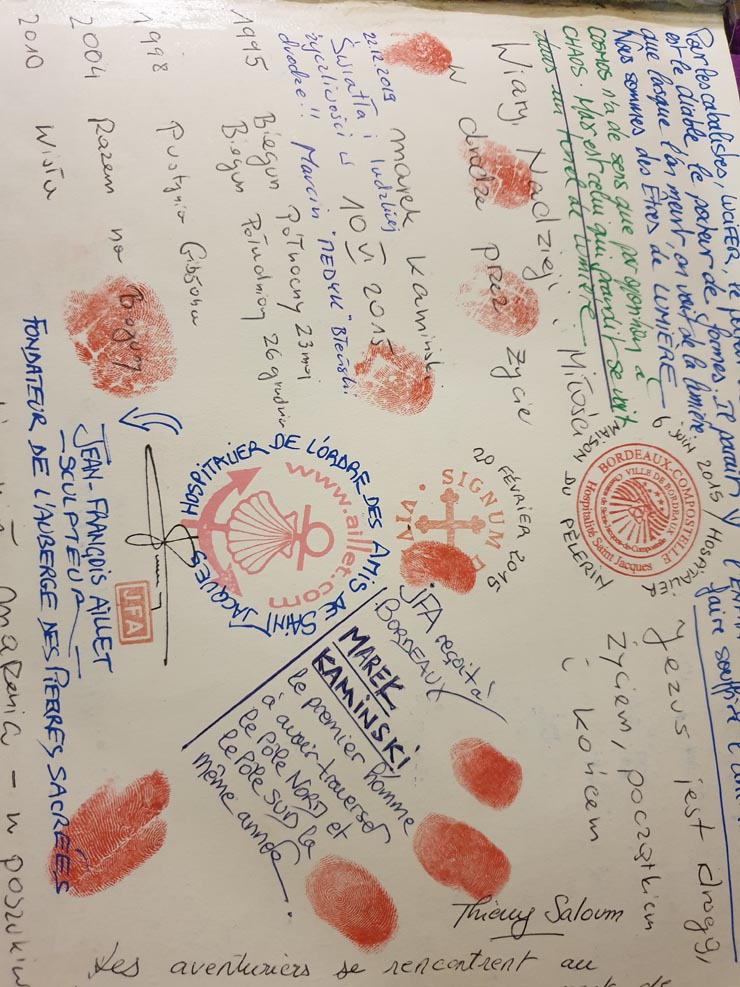 Par les cabalistes, LUCIFER, le
est le diable le porteur de formes. Je
que lorsque l'on meurt, on voit de la lumière
Nous sommes des Êtres de LUMIÈRE
COSMOS n'a de sens que par opposition à
CHAOS. qui se
dans un tunnel de LUMIÈRE
faire souffrire l'
6 JUIN 2015 / HOSPITALIER
MAISON DU PÈLERIN
BORDEAUX-COMPOSTELLE
VILLE DE BORDEAUX
Hospitalité Saint Jacques
Jezus jest drogą,
życiem, początkiem
i końcem
Wiary, Nadziei i Miłości
w drodze przez życie
marek kamiński
10 VI 2015
22.12.2019
Światła i ludzkiej
życzliwości w
drodze!! Marcin "MEDYK"
20 FÉVRIER 2015
VIA SIGNUM
JFA reçoit à
BORDEAUX
MAREK
KAMIŃSKI
le premier homme
à avoir traversé
le Pôle NORD et
le Pôle SUD la
même année.
Thierry Saloum
Les aventuriers se rencontrent au
1995 Biegun Północny 23 maj
Biegun Południowy 26 grudnia
1998 Pustynia Gibsona
2004 Razem na Biegun
2010 Wisła
HOSPITALIER DE L'ORDRE DES AMIS DE SAINT JACQUES
www.aillet.com
J.F.A
JEAN-FRANÇOIS AILLET
SCULPTEUR
FONDATEUR DE L'AUBERGE DES PIERRES SACRÉES
marenia - w